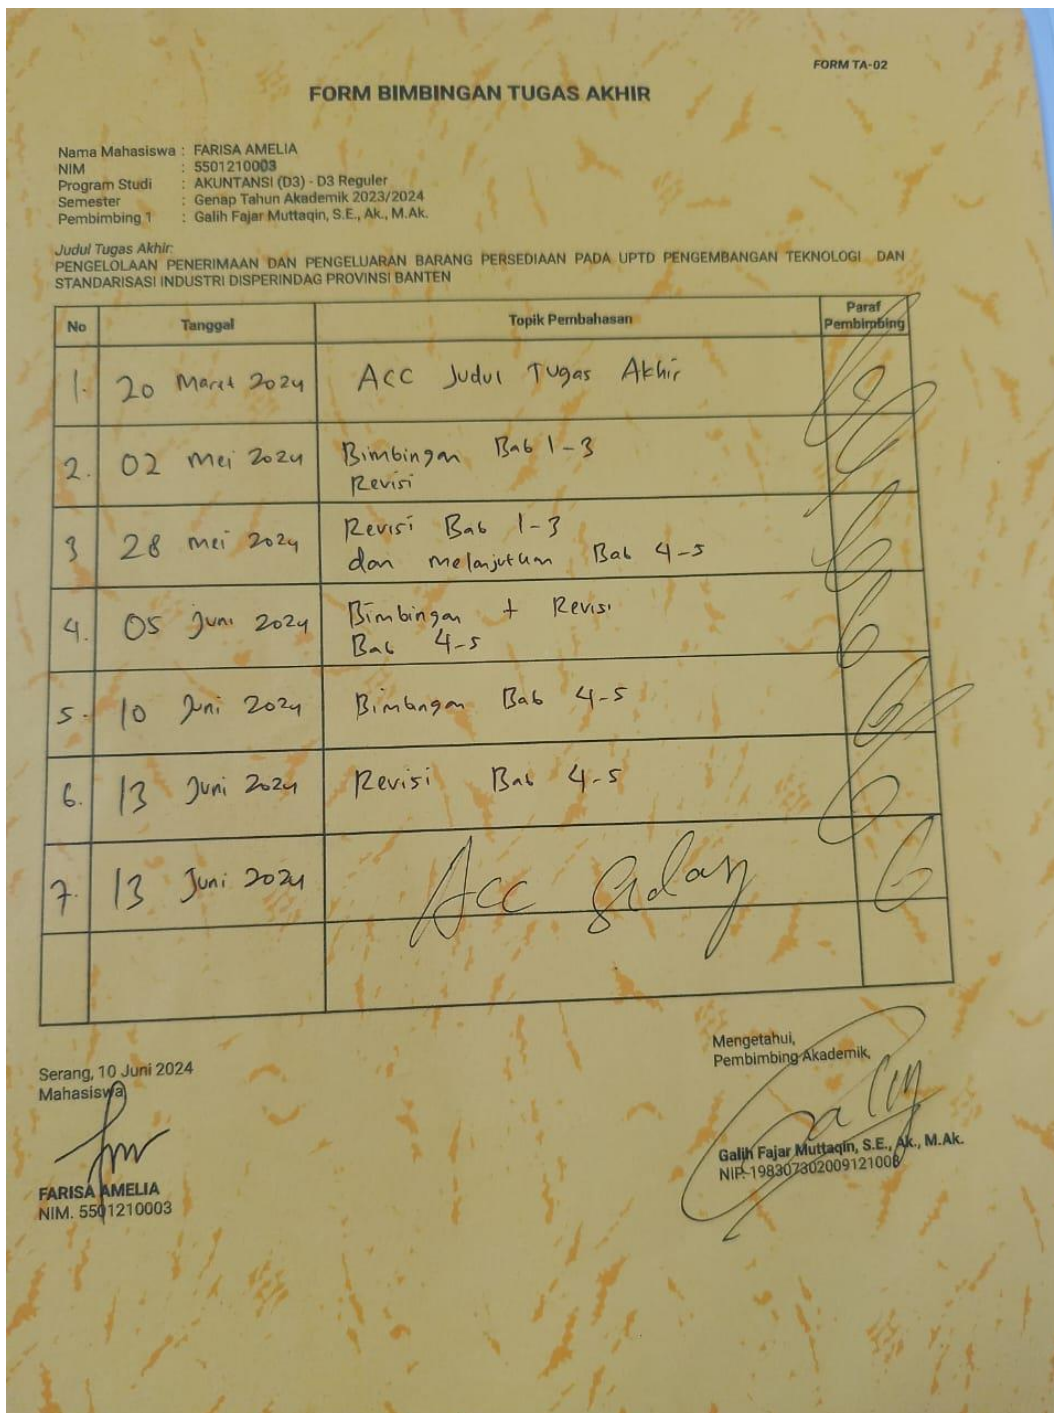 FORM TA-02
FORM BIMBINGAN TUGAS AKHIR
Nama Mahasiswa : FARISA AMELIA
NIM : 5501210003
Program Studi : AKUNTANSI (D3) - D3 Reguler
Semester : Genap Tahun Akademik 2023/2024
Pembimbing 1 : Galih Fajar Muttaqin, S.E., Ak., M.Ak.
Judul Tugas Akhir:
PENGELOLAAN PENERIMAAN DAN PENGELUARAN BARANG PERSEDIAAN PADA UPTD PENGEMBANGAN TEKNOLOGI DAN
STANDARISASI INDUSTRI DISPERINDAG PROVINSI BANTEN
No Tanggal Topik Pembahasan Paraf Pembimbing
1. 20 Maret 2024 ACC Judul Tugas Akhir
2. 02 Mei 2024 Bimbingan Bab 1-3
Revisi
3 28 Mei 2024 Revisi Bab 1-3
dan melanjutkan Bab 4-5
4. 05 Juni 2024 Bimbingan + Revisi
Bab 4-5
5. 10 Juni 2024 Bimbingan Bab 4-5
6. 13 Juni 2024 Revisi Bab 4-5
7. 13 Juni 2024 Acc Sidang
Serang, 10 Juni 2024
Mahasiswa
FARISA AMELIA
NIM. 5501210003
Mengetahui,
Pembimbing Akademik,
Galih Fajar Muttaqin, S.E., Ak., M.Ak.
NIP. 198307302009121006